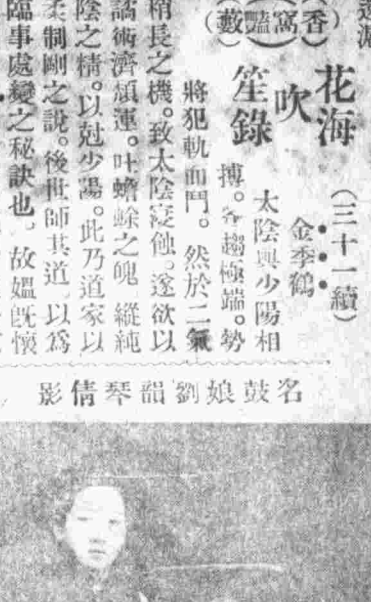 (香)
(窩)
(豔)
(藪)
花海吹笙錄
(三十一續)
金季鶴
太陰與少陽相
搏。各趨極端。勢
將犯軌而鬥。然於二氣
稍長之機。致太陰淩蝕。遂欲以
譎術濟頹運。吐蟾蜍之魄 縱純
陰之精。以尅少陽。此乃道家以
柔制剛之說。後世師其道 以爲
臨事處變之秘訣也。故媼旣懷
名鼓娘劉韻琴倩影